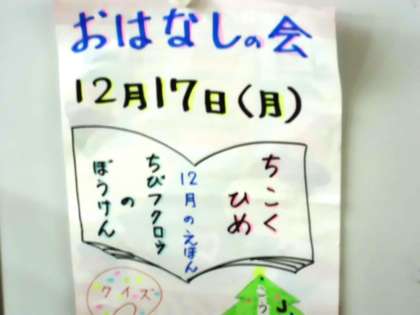 おはなしの会
12月17日(月)
ちこく
ひめ
12月のえほん
ちびフクロウ
の
ぼうけん
クイズ
J.